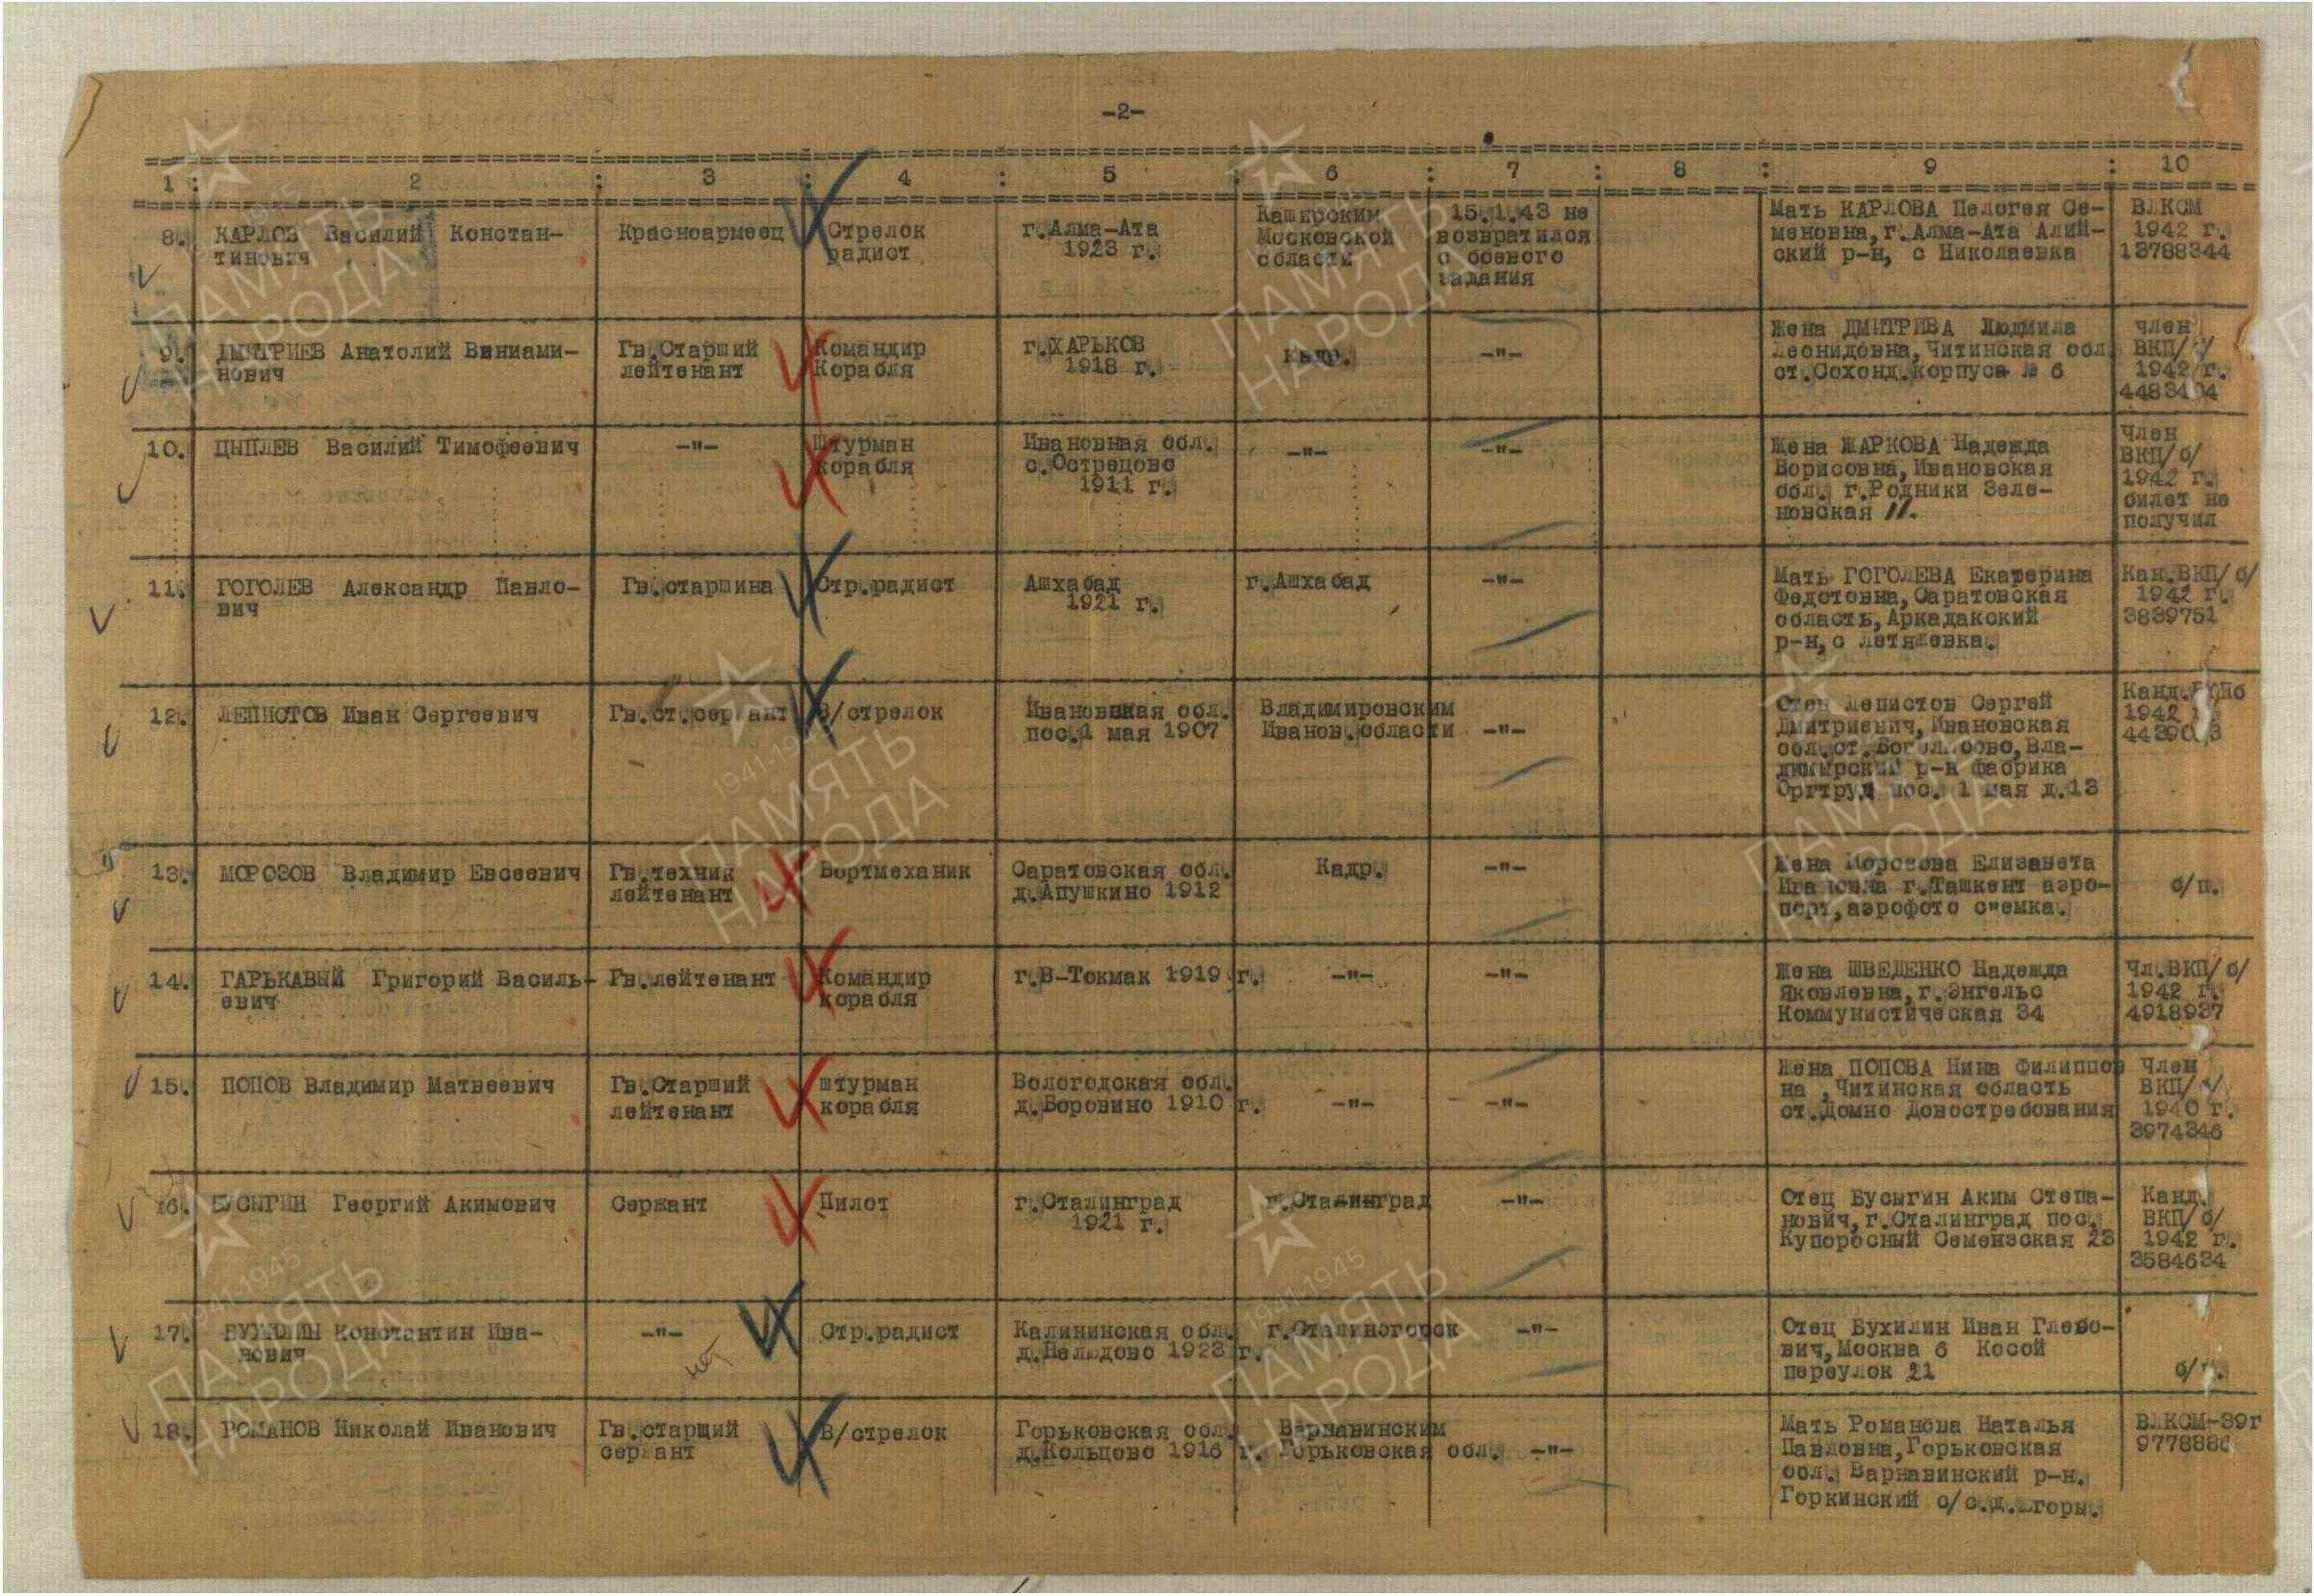 -2-
1 : 2 : 3 : 4 : 5 : 6 : 7 : 8 : 9 : 10
8. КАРЛОВ Василий Констан-
тинович
Красноармеец
Стрелок
радист
г.Алма-Ата
1923 г.
Каширским
Московской
области
15.1.43 не
возвратился
с боевого
задания
Мать КАРЛОВА Пелогея Се-
меновна,г.Алма-Ата Алий-
ский р-н, с Николаевка
ВЛКСМ
1942 г.
13788344
9. ДМИТРИЕВ Анатолий Виниами-
нович
Гв.Старший
лейтенант
Командир
Корабля
г.ХАРЬКОВ
1918 г.
Кадр.
-"-
Жена ДМИТРИЕВА Людмила
Леонидовна,Читинская обл
ст.Сохонд.корпуса № 6
член
ВКП/
1942 г.
10. ЦЫПЛЕВ Василий Тимофеевич
-"-
Штурман
корабля
Ивановная обл.
с.Острецово
1911 г.
-"-
-"-
Жена ЖАРКОВА Надежда
Борисовна,Ивановская
обл. г.Родники Зеле-
новская 11.
Член
ВКП/б/
1942 г.
билет не
получил
11. ГОГОЛЕВ Александр Павло-
вич
Гв.старшина
Стр.радист
Ашхабад
1921 г.
г.Ашхабад
-"-
Мать ГОГОЛЕВА Екатерина
Федотовна,Саратовская
область,Аркадакский
р-н,с Летяжевка.
Кан.ВКП/б/
1942 г.
3839751
12. ЛЕПИСТОВ Иван Сергеевич
Гв.ст.сержант
В/стрелок
Ивановская обл.
пос.1 мая 1907
Владимировским
Иванов.области
-"-
Отец Лепистов Сергей
Дмитриевич,Ивановская
обл.ст.Боголюбово,Вла-
димирский р-н фабрика
Оргтруд пос. 1 мая д.13
Канд.
1942
13. МОРОЗОВ Владимир Евсеевич
Гв.техник
лейтенант
Бортмеханик
Саратовская обл.
д.Апушкино 1912
Кадр.
-"-
Жена Морозова Елизавета
Ивановна г.Ташкент аэро-
порт,аэрофото с"емка.
б/п.
14. ГАРЬКАВЫЙ Григорий Василь-
евич
Гв.лейтенант
Командир
корабля
г.В-Токмак 1919 г.
-"-
-"-
Жена ШВЕДЕНКО Надежда
Яковлевна,г.Энгельс
Коммунистическая 34
Чл.ВКП/б/
1942 г.
4918937
15. ПОПОВ Владимир Матвеевич
Гв.Старший
лейтенант
штурман
корабля
Вологодская обл.
д.Боровино 1910 г.
-"-
-"-
Жена ПОПОВА Нина Филиппов
на ,Читинская область
ст.Домно Довостребования
Член
ВКП/
1940 г.
3974346
16. БУСЫГИН Георгий Акимович
Сержант
Пилот
г.Сталинград
1921 г.
г.Сталинград
-"-
Отец Бусыгин Аким Степа-
нович,г.Сталинград пос.
Купоросный Семензская 23
Канд.
ВКП/б/
1942 г.
3584634
17. БУХИЛИН Константин Ива-
нович
-"-
нет
Стр.радист
Калининская обл.
д.Нелидово 1923 г.
г.Сталиногорск
-"-
Отец Бухилин Иван Глебо-
вич,Москва 6 Косой
переулок 21
б/п.
18. РОМАНОВ Николай Иванович
Гв.старщий
сержант
В/стрелок
Горьковская обл.
д.Кольцово 1916 г.
Варнавинским
Горьковская обл.
-"-
Мать Романова Наталья
Павловна,Горьковская
обл. Варнавинский р-н.
Горкинский с/с.д. горы.
ВЛКСМ-39г
9778886
1941-1945
ПАМЯТЬ
НАРОДА